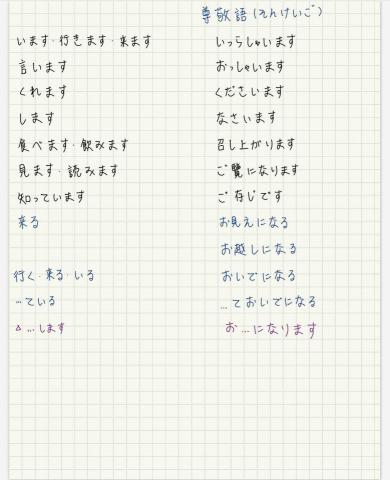 尊敬語(そんけいご)
います・行きます・来ます いっらしゃいます
言います おっしゃいます
くれます くださいます
します なさいます
食べます・飲みます 召し上がります
見ます・読みます ご覧になります
知っています ご存じです
来る お見えになる
お越しになる
行く・来る・いる おいでになる
…ている …ておいでになる
△ …します お…になります